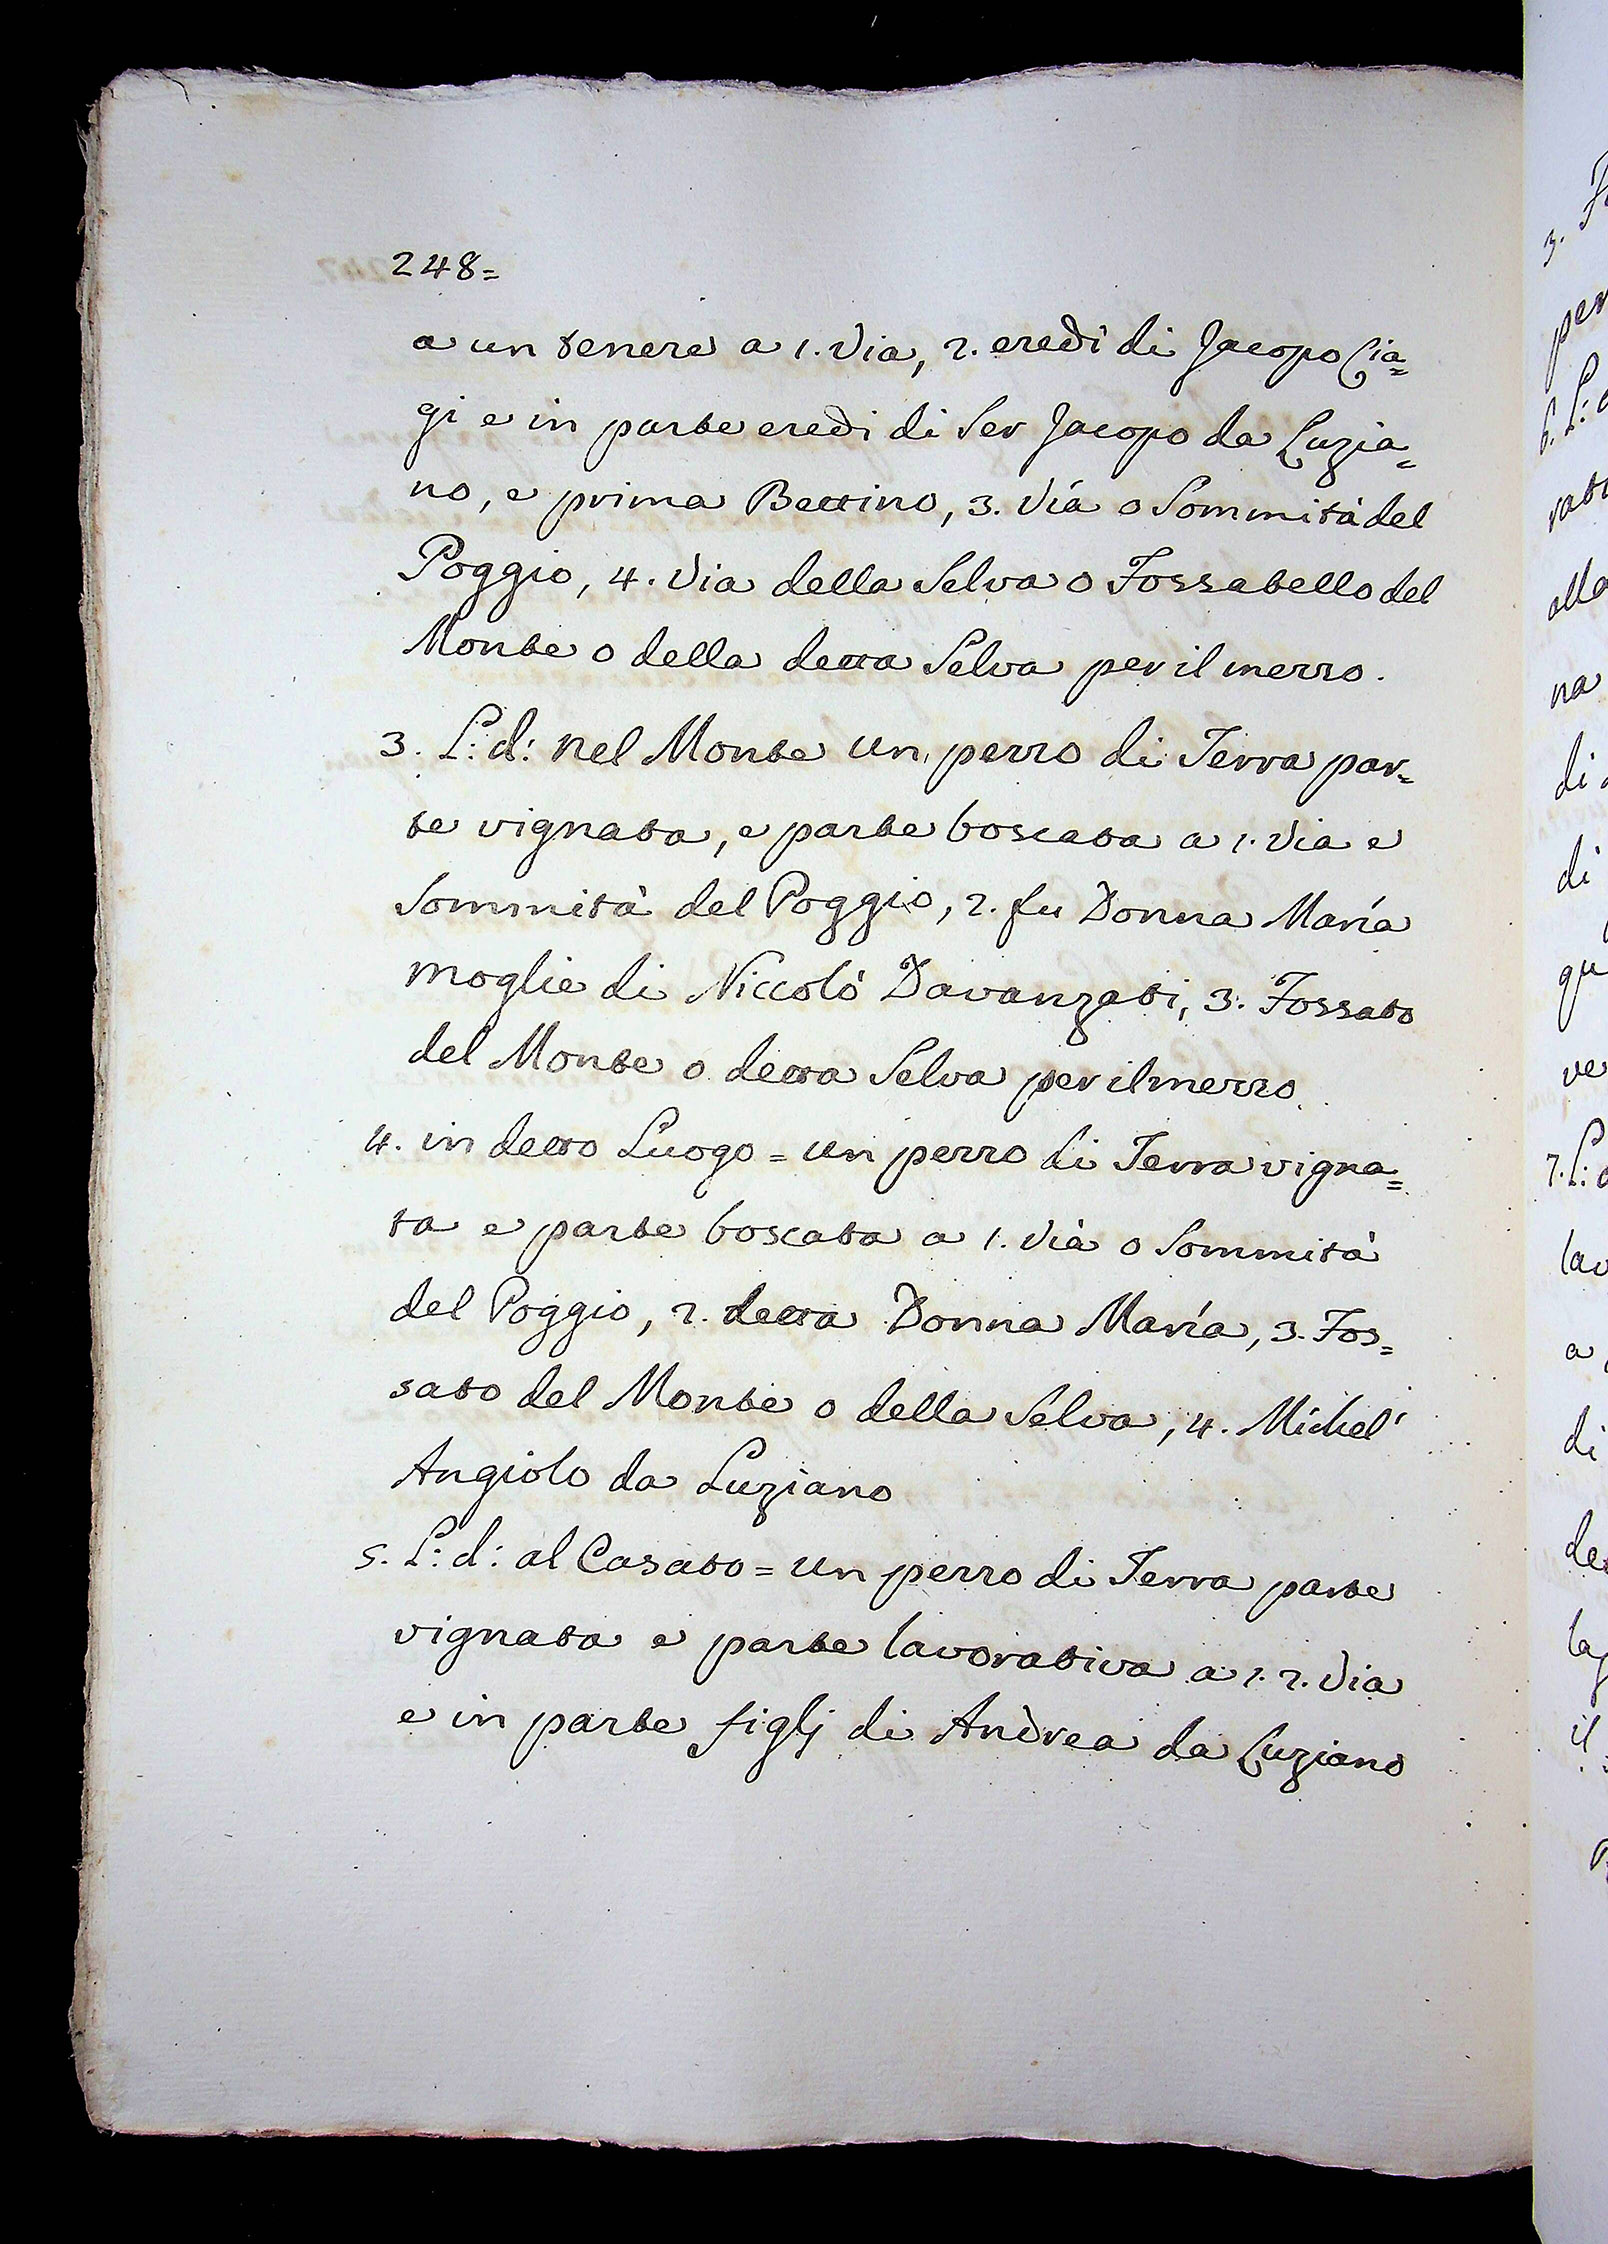 248=
a un tenere a 1. Via, 2. eredi di Jacopo Cia=
gi e in parte eredi di Ser Jacopo da Luzia=
no, e prima Bettino, 3. Via o Sommità del
Poggio, 4. Via della Selva o Fossatello del
Monte o della detta Selva per il mezzo.
3. L: d: nel Monte un pezzo di Terra par=
te vignata, e parte boscata a 1. Via e
Sommità del Poggio, 2. fu Donna Maria
moglie di Niccolò Davanzati, 3. Fossato
del Monte o detta Selva per il mezzo.
4. in detto Luogo = un pezzo di Terra vigna=
ta e parte boscata a 1. Via o Sommità
del Poggio, 2. detta Donna Maria, 3. Fos=
sato del Monte o della Selva, 4. Michel'
Angiolo da Luziano
5. L: d: al Casato = un pezzo di Terra parte
vignata e parte lavorativa a 1. 2. Via
e in parte figlj di Andrea da Luziano